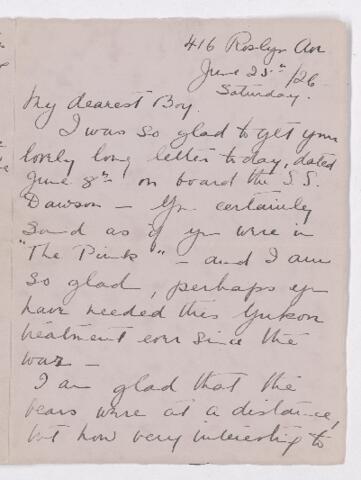 416 Roslyn Ave
June 25th /26
Saturday.
My dearest Boy.
I was so glad to get your
lovely long letter today, dated
June 8th on board the S.S.
Dawson — You certainly
sound as if you were in
"The Pink" — and I am
so glad, perhaps you
have needed this Yukon
treatment ever since the
war —
I am glad that the
bears were at a distance,
but how very interesting to